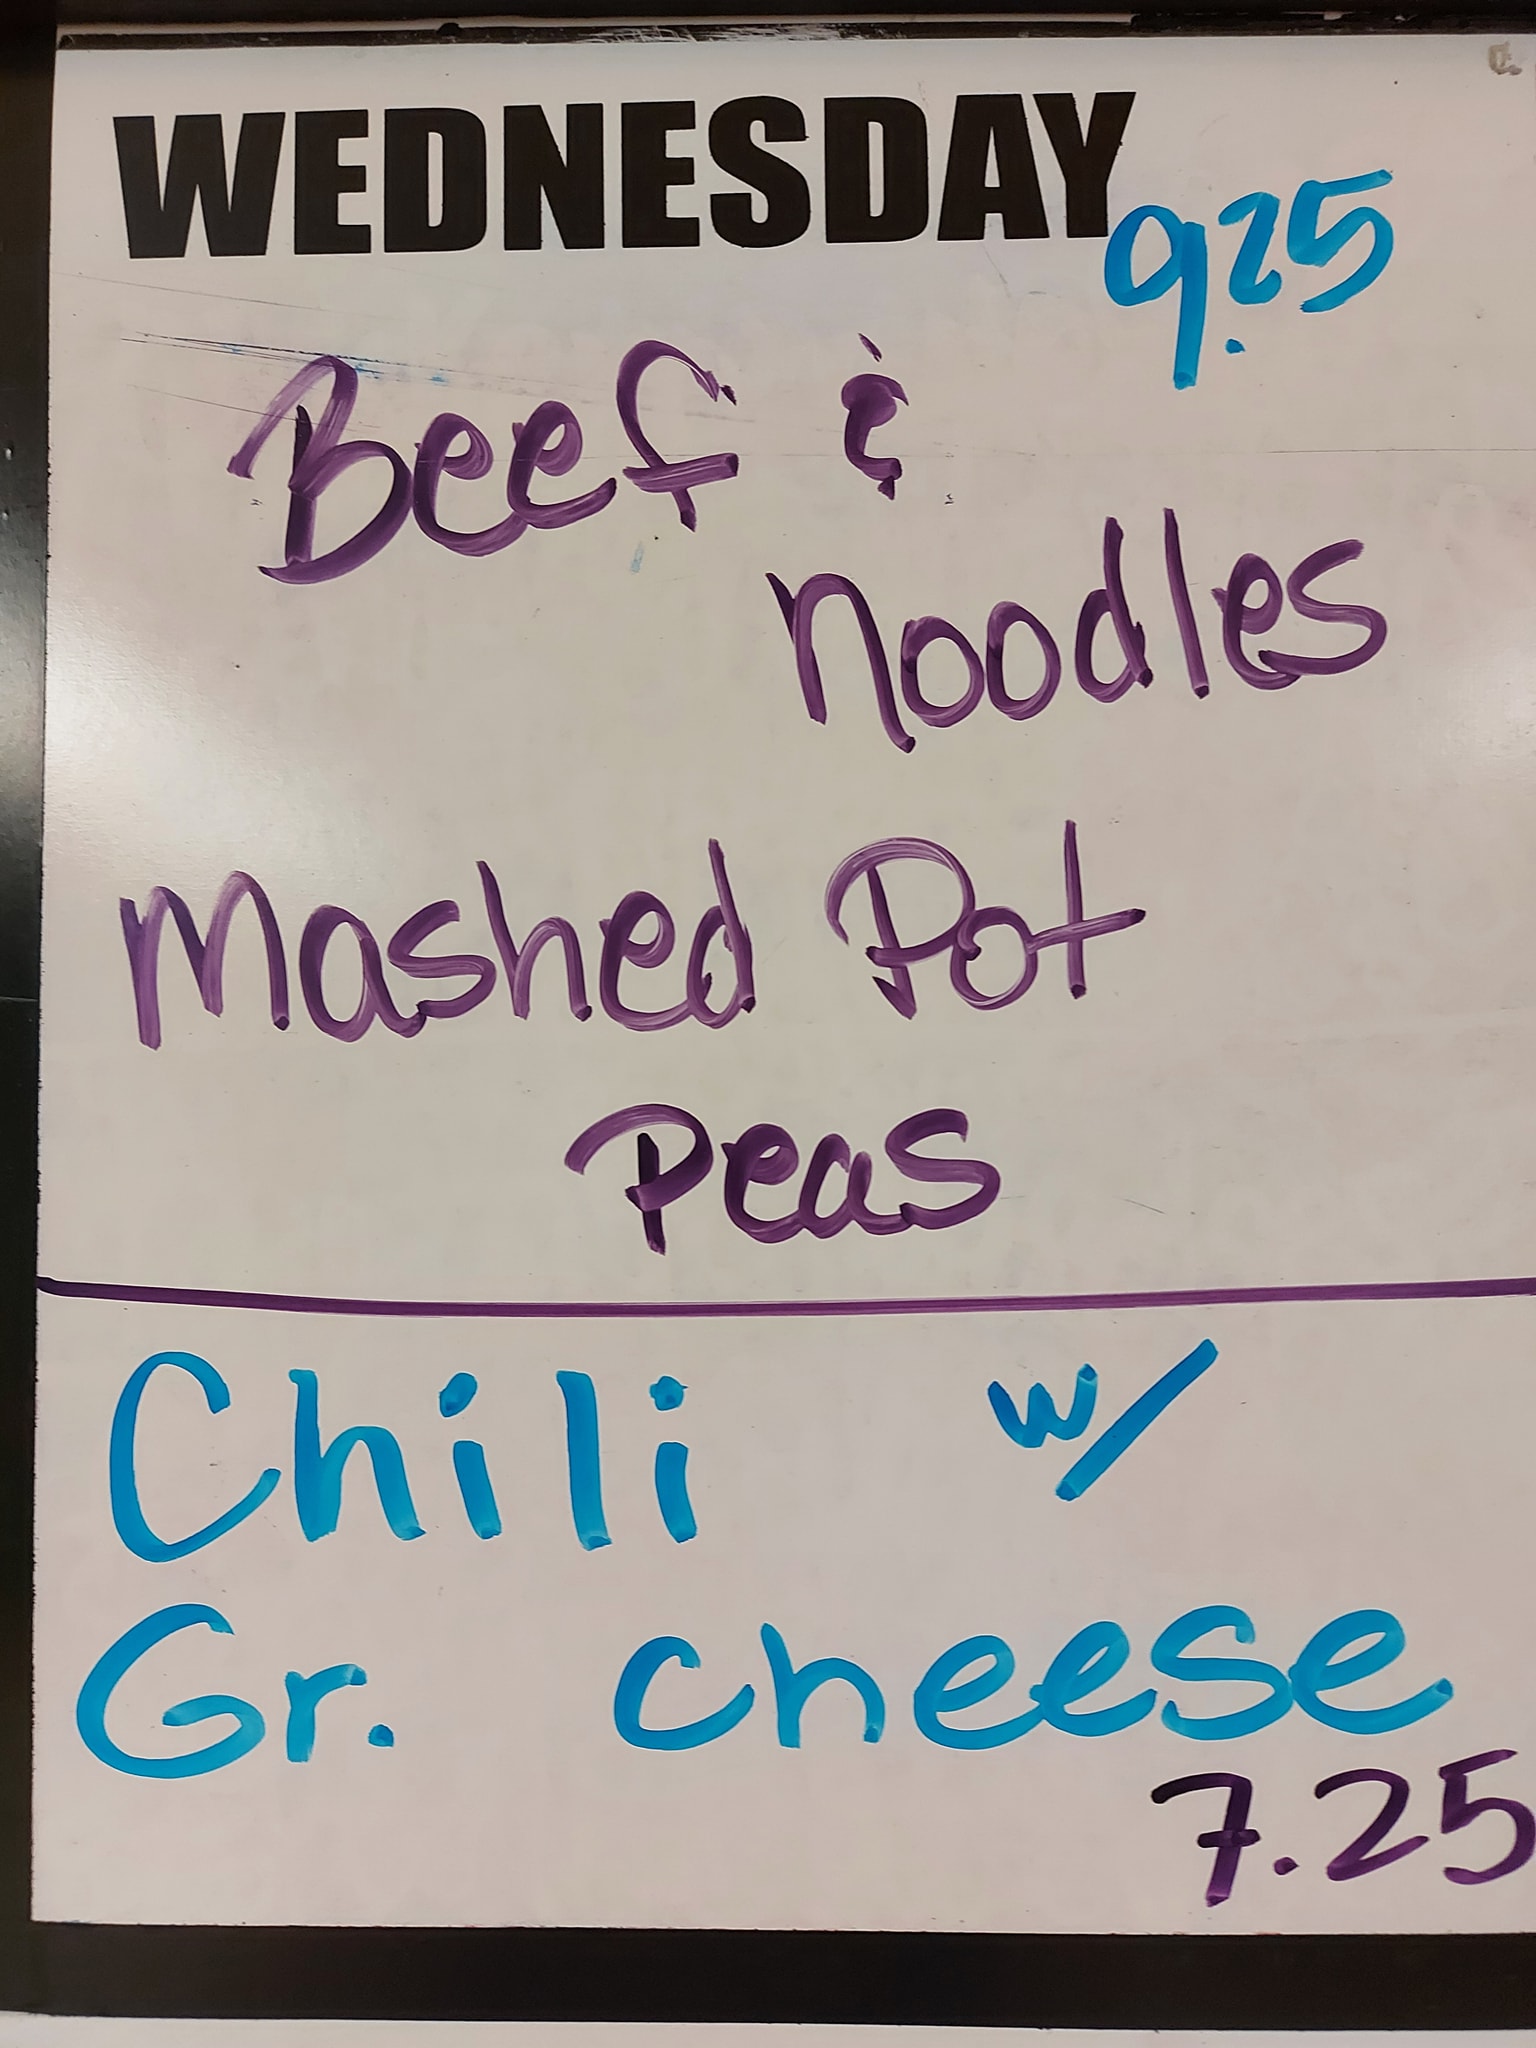 WEDNESDAY
9.25
Beef &
noodles
Mashed Pot
Peas
Chili w/
Gr. cheese
7.25